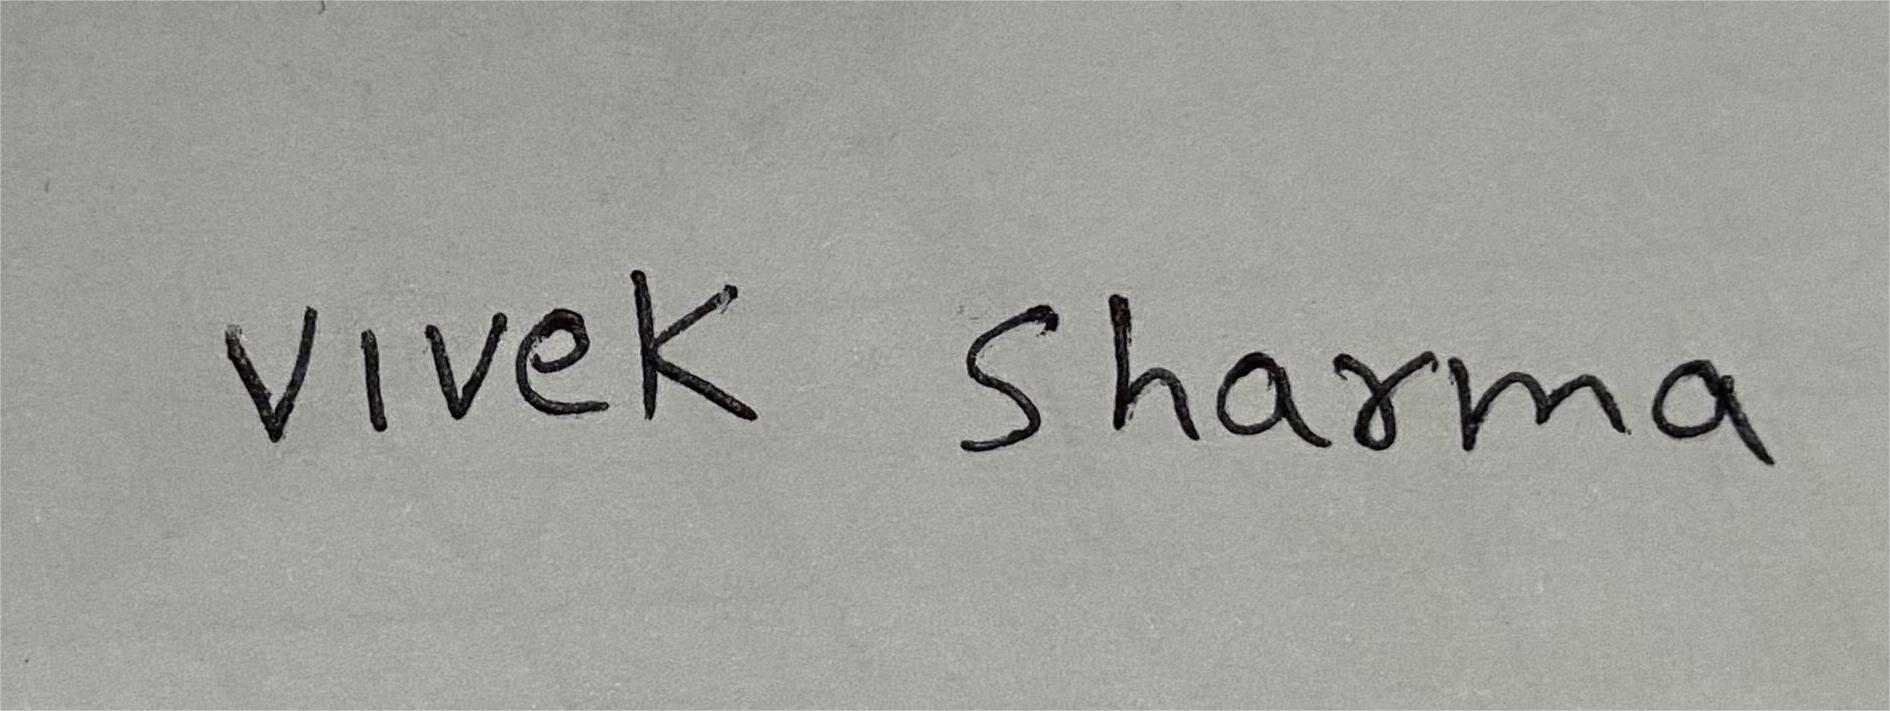 Vivek Sharma